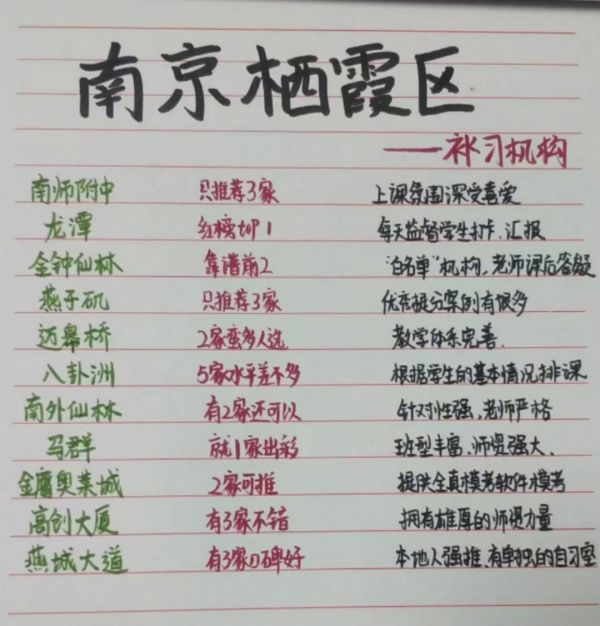 南京栖霞区
——补习机构
南师附中 只推荐3家 上课氛围深受喜爱
龙潭 红榜top1 每天监督学生打卡、汇报
金钟仙林 靠谱前2 "白名单"机构，老师课后答疑
燕子矶 只推荐3家 优秀提分案例有很多
迈皋桥 2家蛮多人选 教学体系完善、
八卦洲 5家水平差不多 根据学生的基本情况排课
南外仙林 有2家还可以 针对性强，老师严格
马群 就1家出彩 班型丰富、师资强大、
金鹰奥莱城 2家可推 提供全真模考软件模考
高创大厦 有3家不错 拥有雄厚的师资力量
燕城大道 有3家口碑好 本地人强推、有单独的自习室